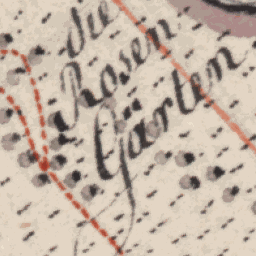 die
Rosen
Gärten